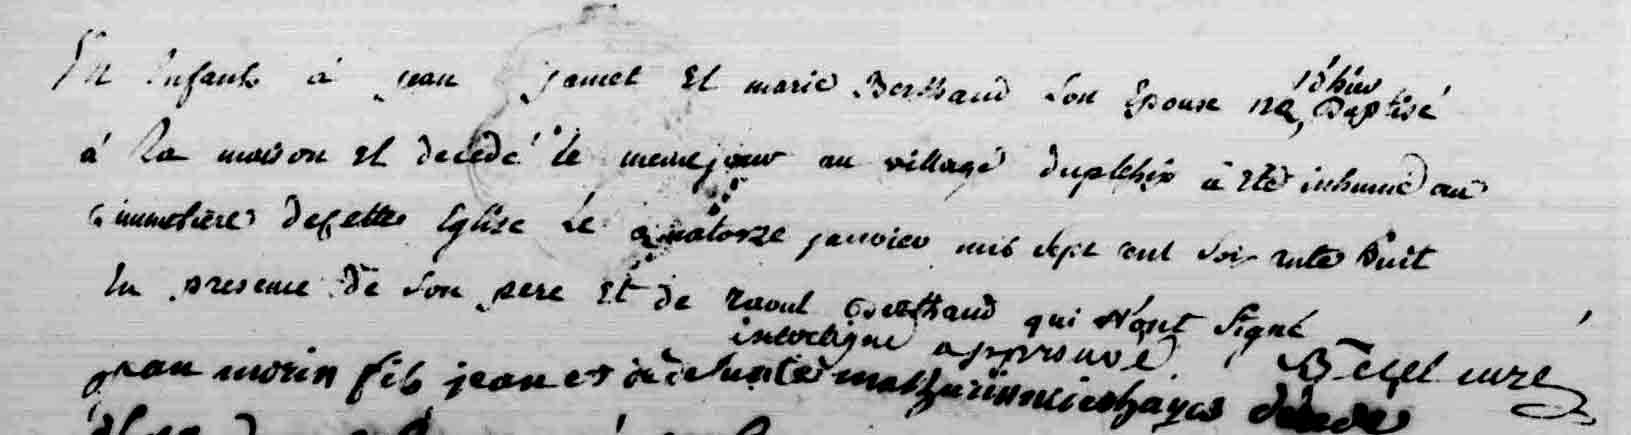 Un Enfant à jean jamet et marie Berthaud son Epouse né, d'hier Baptisé
à la maison et decedé le meme jour au village duplessix a eté inhumé au
cimmetiere decette Eglise le quatorze janvier mil sept cent soixante huit
En presence de son pere et de raoul Berthaud qui n'ont signé
interligne approuvé Bezel curé
jean morin fils jean et de defunte mathurinne decedé